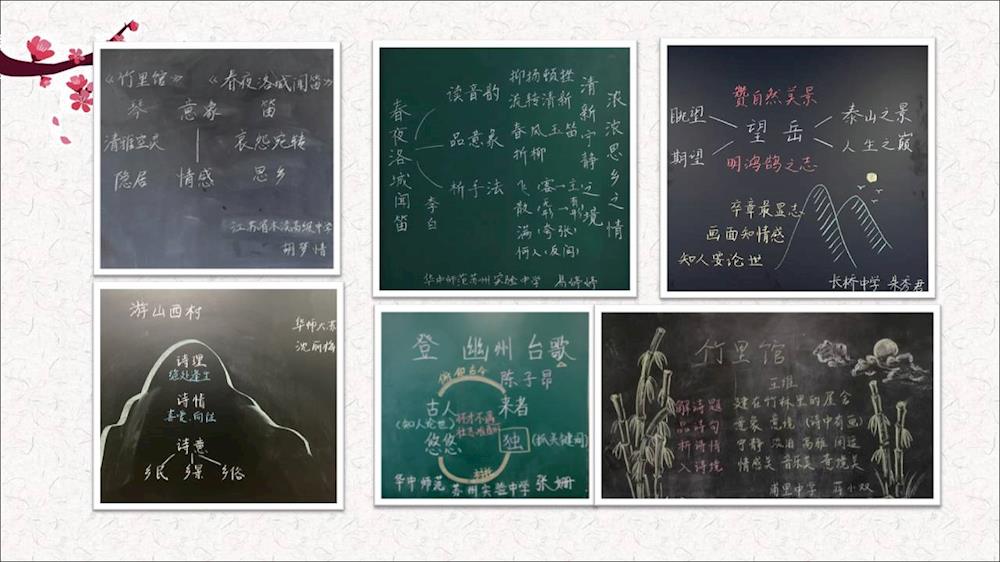 《竹里馆》 《春夜洛城闻笛》
琴 意象 笛
清雅空灵 哀怨宛转
隐居 情感 思乡
江苏省木渎高级中学
胡梦情
春夜洛城闻笛
李白
读音韵
品意象
析手法
抑扬顿挫
流转清新
春风 玉笛
折柳
飞（客—主）
散（无形—有形）
满（夸张）
何人（反问）
清新宁静之境
浓浓思乡之情
华中师范苏州实验中学 易婷婷
赞自然美景
眺望
期望
望岳
泰山之景
人生之巅
明鸿鹄之志
卒章最显志
画面知情感
知人要论世
长桥中学 朱秀君
游山西村
华师大苏
沈丽梅
诗理
绝处逢生
诗情
喜爱、向往
诗意
乡民 乡景 乡俗
登幽州台歌
陈子昂
俯仰古今
古人
（知人论世）
悠悠
怀才不遇
来者
独
（抓关键词）
华中师范苏州实验中学 张姗
竹里馆
王维
解诗题 建在竹林里的屋舍
品诗句 意象 意境（诗中有画）
析诗情 宁静 淡泊 高雅 闲适
入诗境 情感美 音乐美 意境美
甫里中学 蒋小双